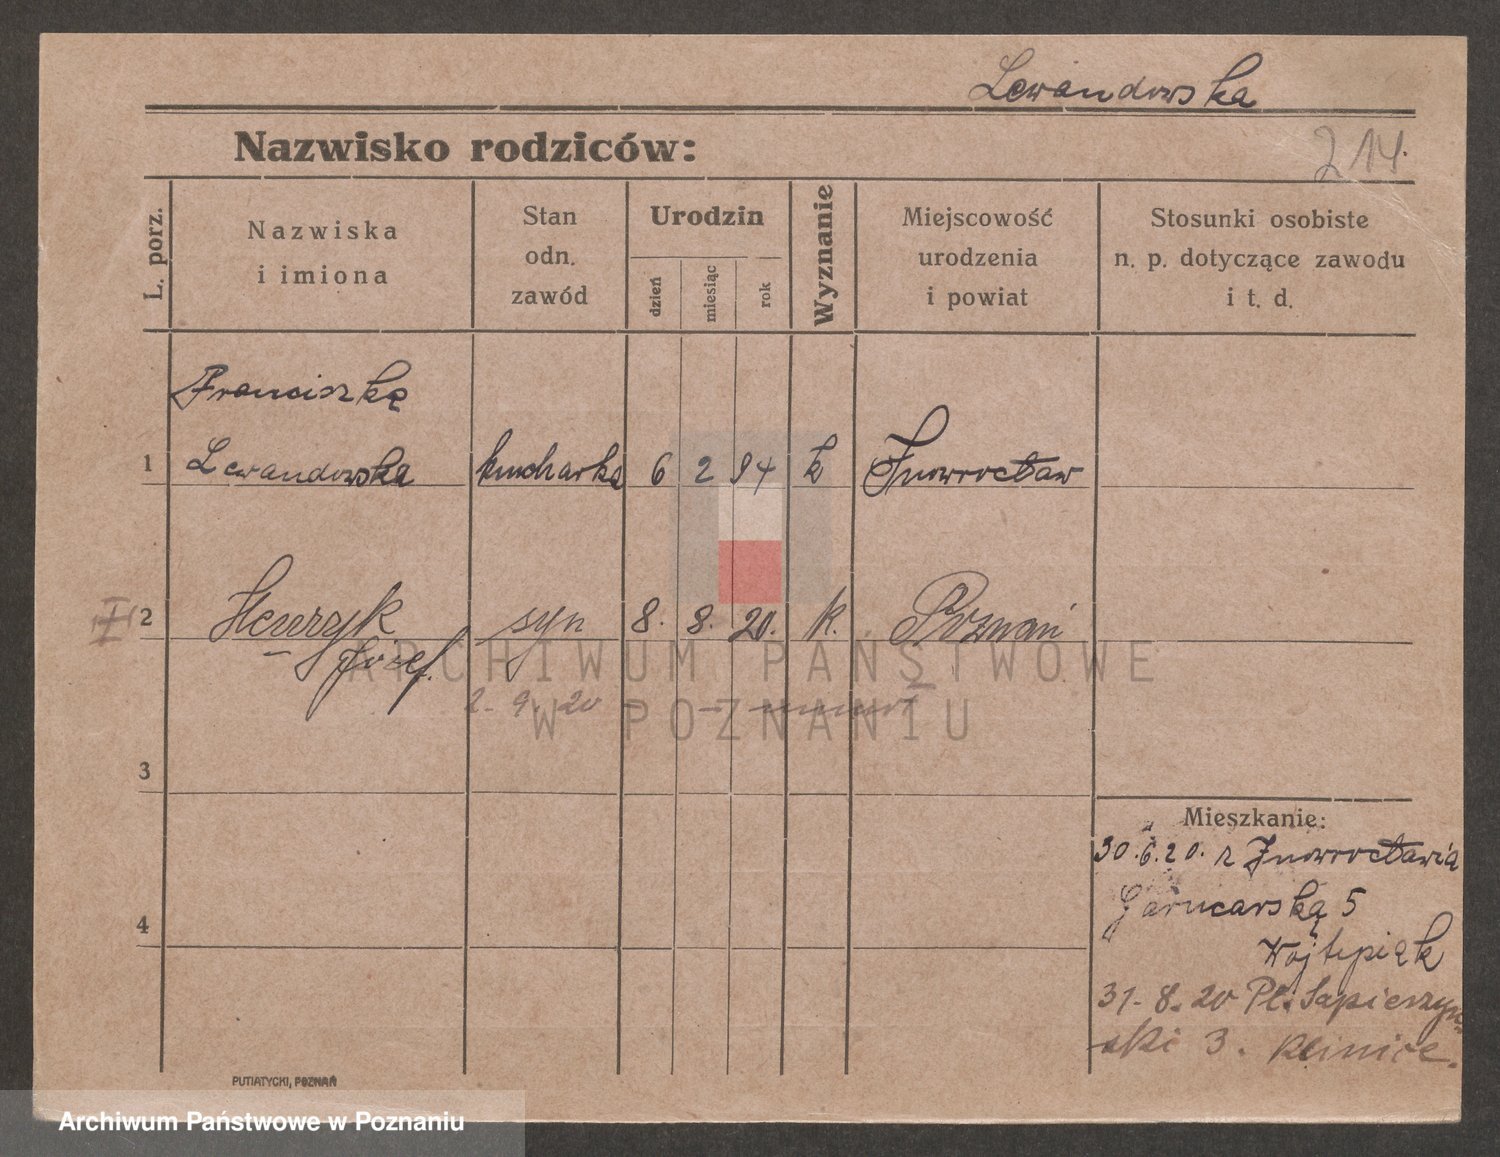 Lewandowska
Nazwisko rodziców:
214.
L. porz.
Nazwiska
i imiona
Stan
odn.
zawód
Urodzin
dzień
miesiąc
rok
Wyznanie
Miejscowość
urodzenia
i powiat
Stosunki osobiste
n. p. dotyczące zawodu
i t. d.
Franciszka
1 Lewandowska kucharka 6 2 94 k Inowrocław
I 2 Henryk syn 8. 8. 20. k. Poznań
Józef.
2. 9. 20
3
4
Mieszkanie:
30.6.20. z Inowrocławia
Garncarska 5
Wojtysiak
31.8.20 Pl. Sapieżyń
ski 3. Klinice.
PUTIATYCKI, POZNAŃ
ARCHIWUM PAŃSTWOWE
W POZNANIU
Archiwum Państwowe w Poznaniu